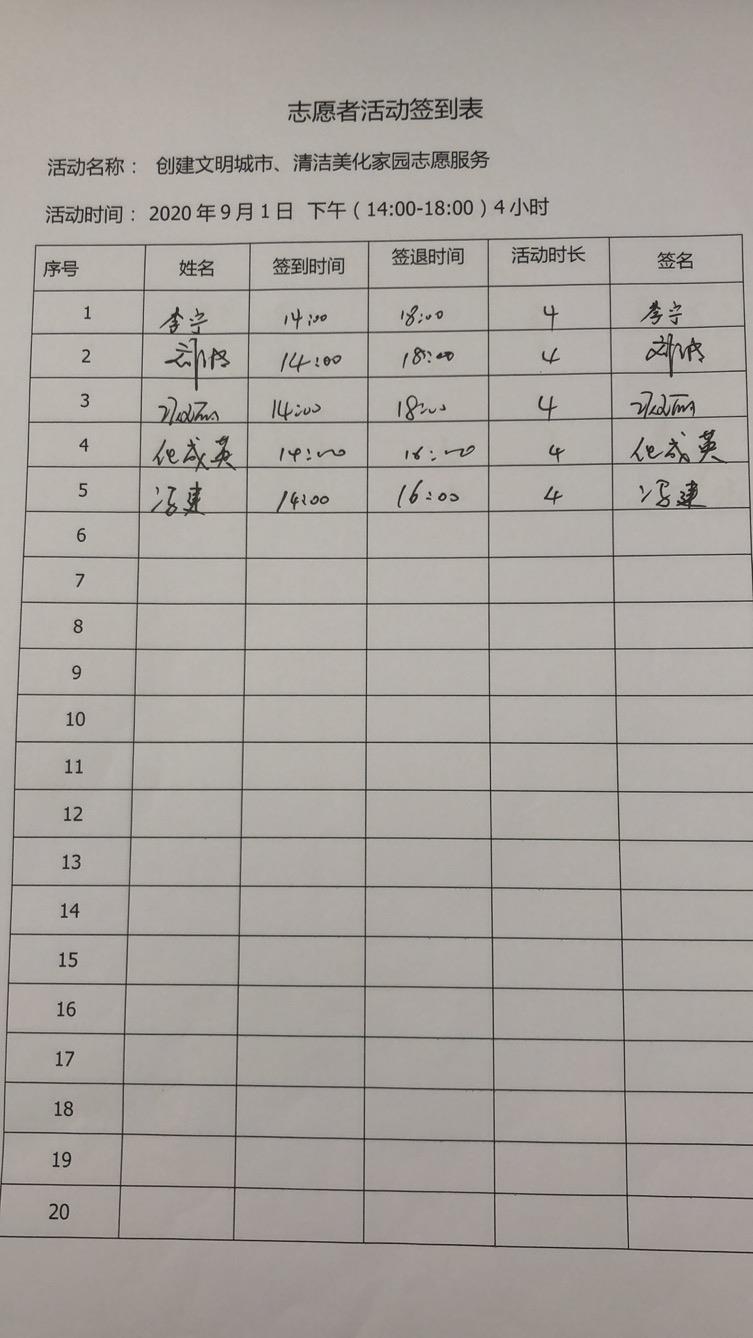 志愿者活动签到表
活动名称： 创建文明城市、清洁美化家园志愿服务
活动时间：2020年9月1日 下午（14:00-18:00）4小时
序号 姓名 签到时间 签退时间 活动时长 签名
1 李宁 14:00 18:00 4 李宁
2 14:00 18:00 4
3 14:00 18:00 4
4 化成英 14:00 16:00 4 化成英
5 冯建 14:00 16:00 4 冯建
6
7
8
9
10
11
12
13
14
15
16
17
18
19
20